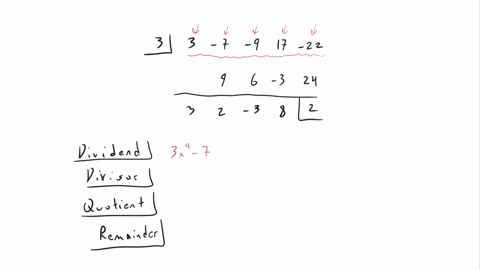 3 3 -7 -9 17 -22
9 6 -3 24
3 2 -3 8 2
Dividend 3x⁴-7
Divisor
Quotient
Remainder